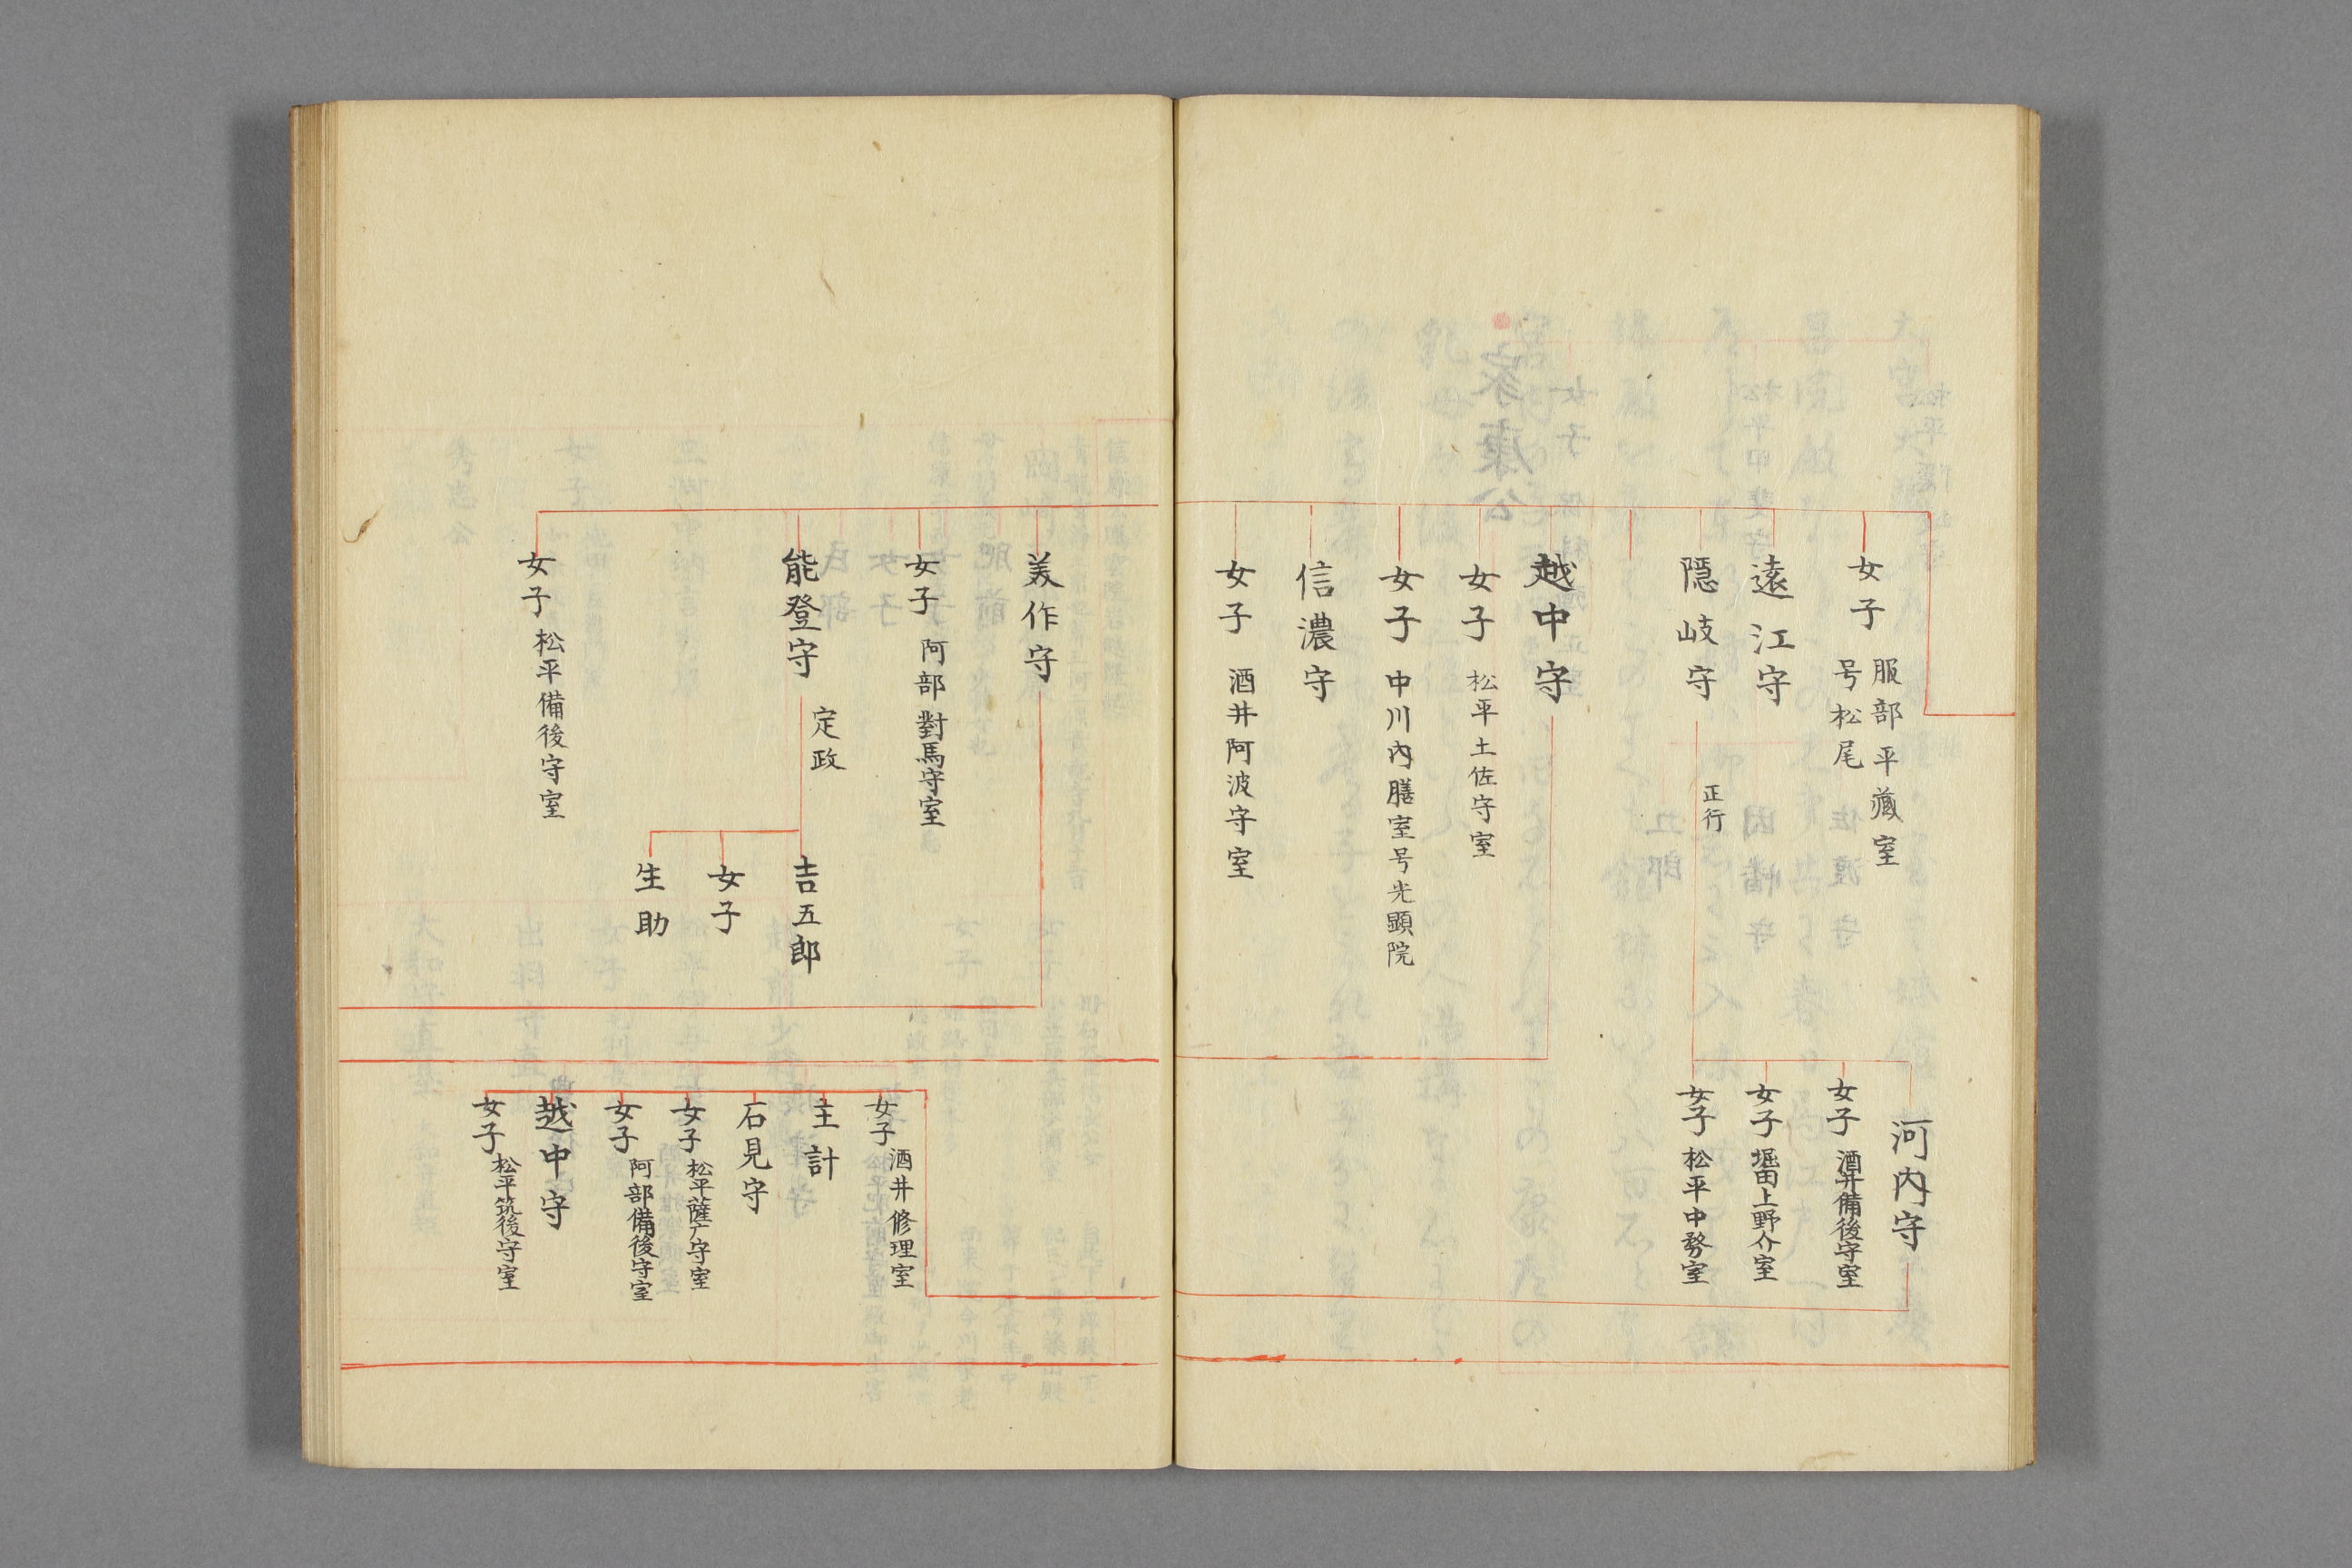 女子
服部平蔵室
号松尾
遠江守
隠岐守
正行
河内守
女子
酒井備後守室
女子
堀田上野介室
女子
松平中務室
越中守
女子
松平土佐守室
女子
中川内膳室号光顕院
信濃守
女子
酒井阿波守室
美作守
女子
阿部對馬守室
能登守
定政
吉五郎
女子
生助
女子
松平備後守室
女子
酒井修理室
主計
石見守
女子
松平薩广守室
女子
阿部備後守室
越中守
女子
松平筑後守室